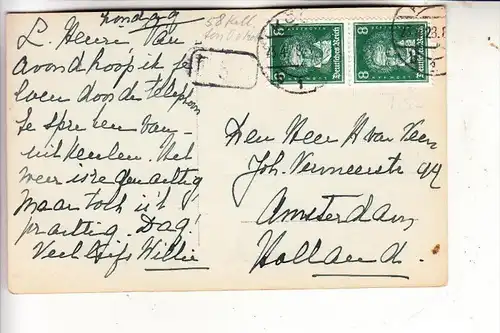 Zondag
L. Henri, Van
avond hoop ik je
even door de telefoon
te spreken van-
uit Keulen. Het
weer is regenachtig
maar toch is 't
prachtig. Dag!
Veel liefs Willie
Den Heer H van Veen
Joh. Vermeerstr
Amsterdam
Holland.
8 8
Deutsches Reich Deutsches Reich
T